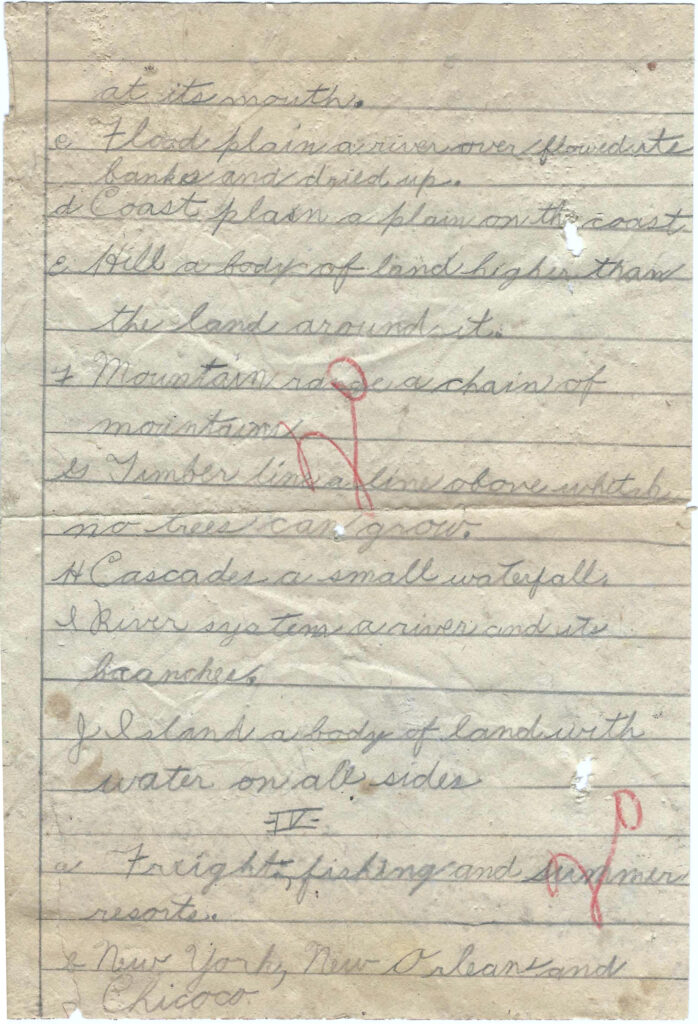 at its mouth.
c Flood plain a river over flowed its
banks and dried up.
d Coast plain a plain on the coast
E Hill a body of land higher than
the land around it.
F Mountain range a chain of
mountains
G Timber line a line above whitch
no trees can grow.
H Cascades a small waterfall.
I River system a river and its
branches.
J Island a body of land with
water on all sides
-IV-
a Freight, fishing and summer
resorts.
b New York, New Orleans and
Chicoco